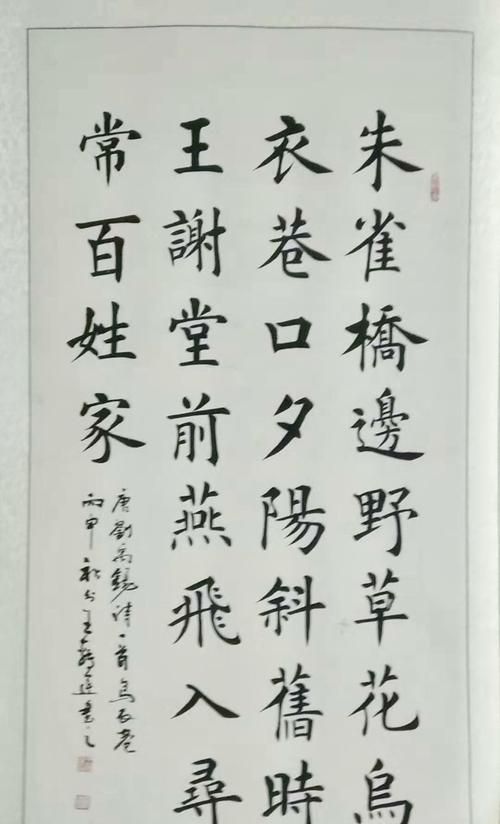 朱雀橋邊野草花烏
衣巷口夕陽斜舊時
王謝堂前燕飛入尋
常百姓家
唐劉禹錫詩一首烏衣巷
丙申秋書